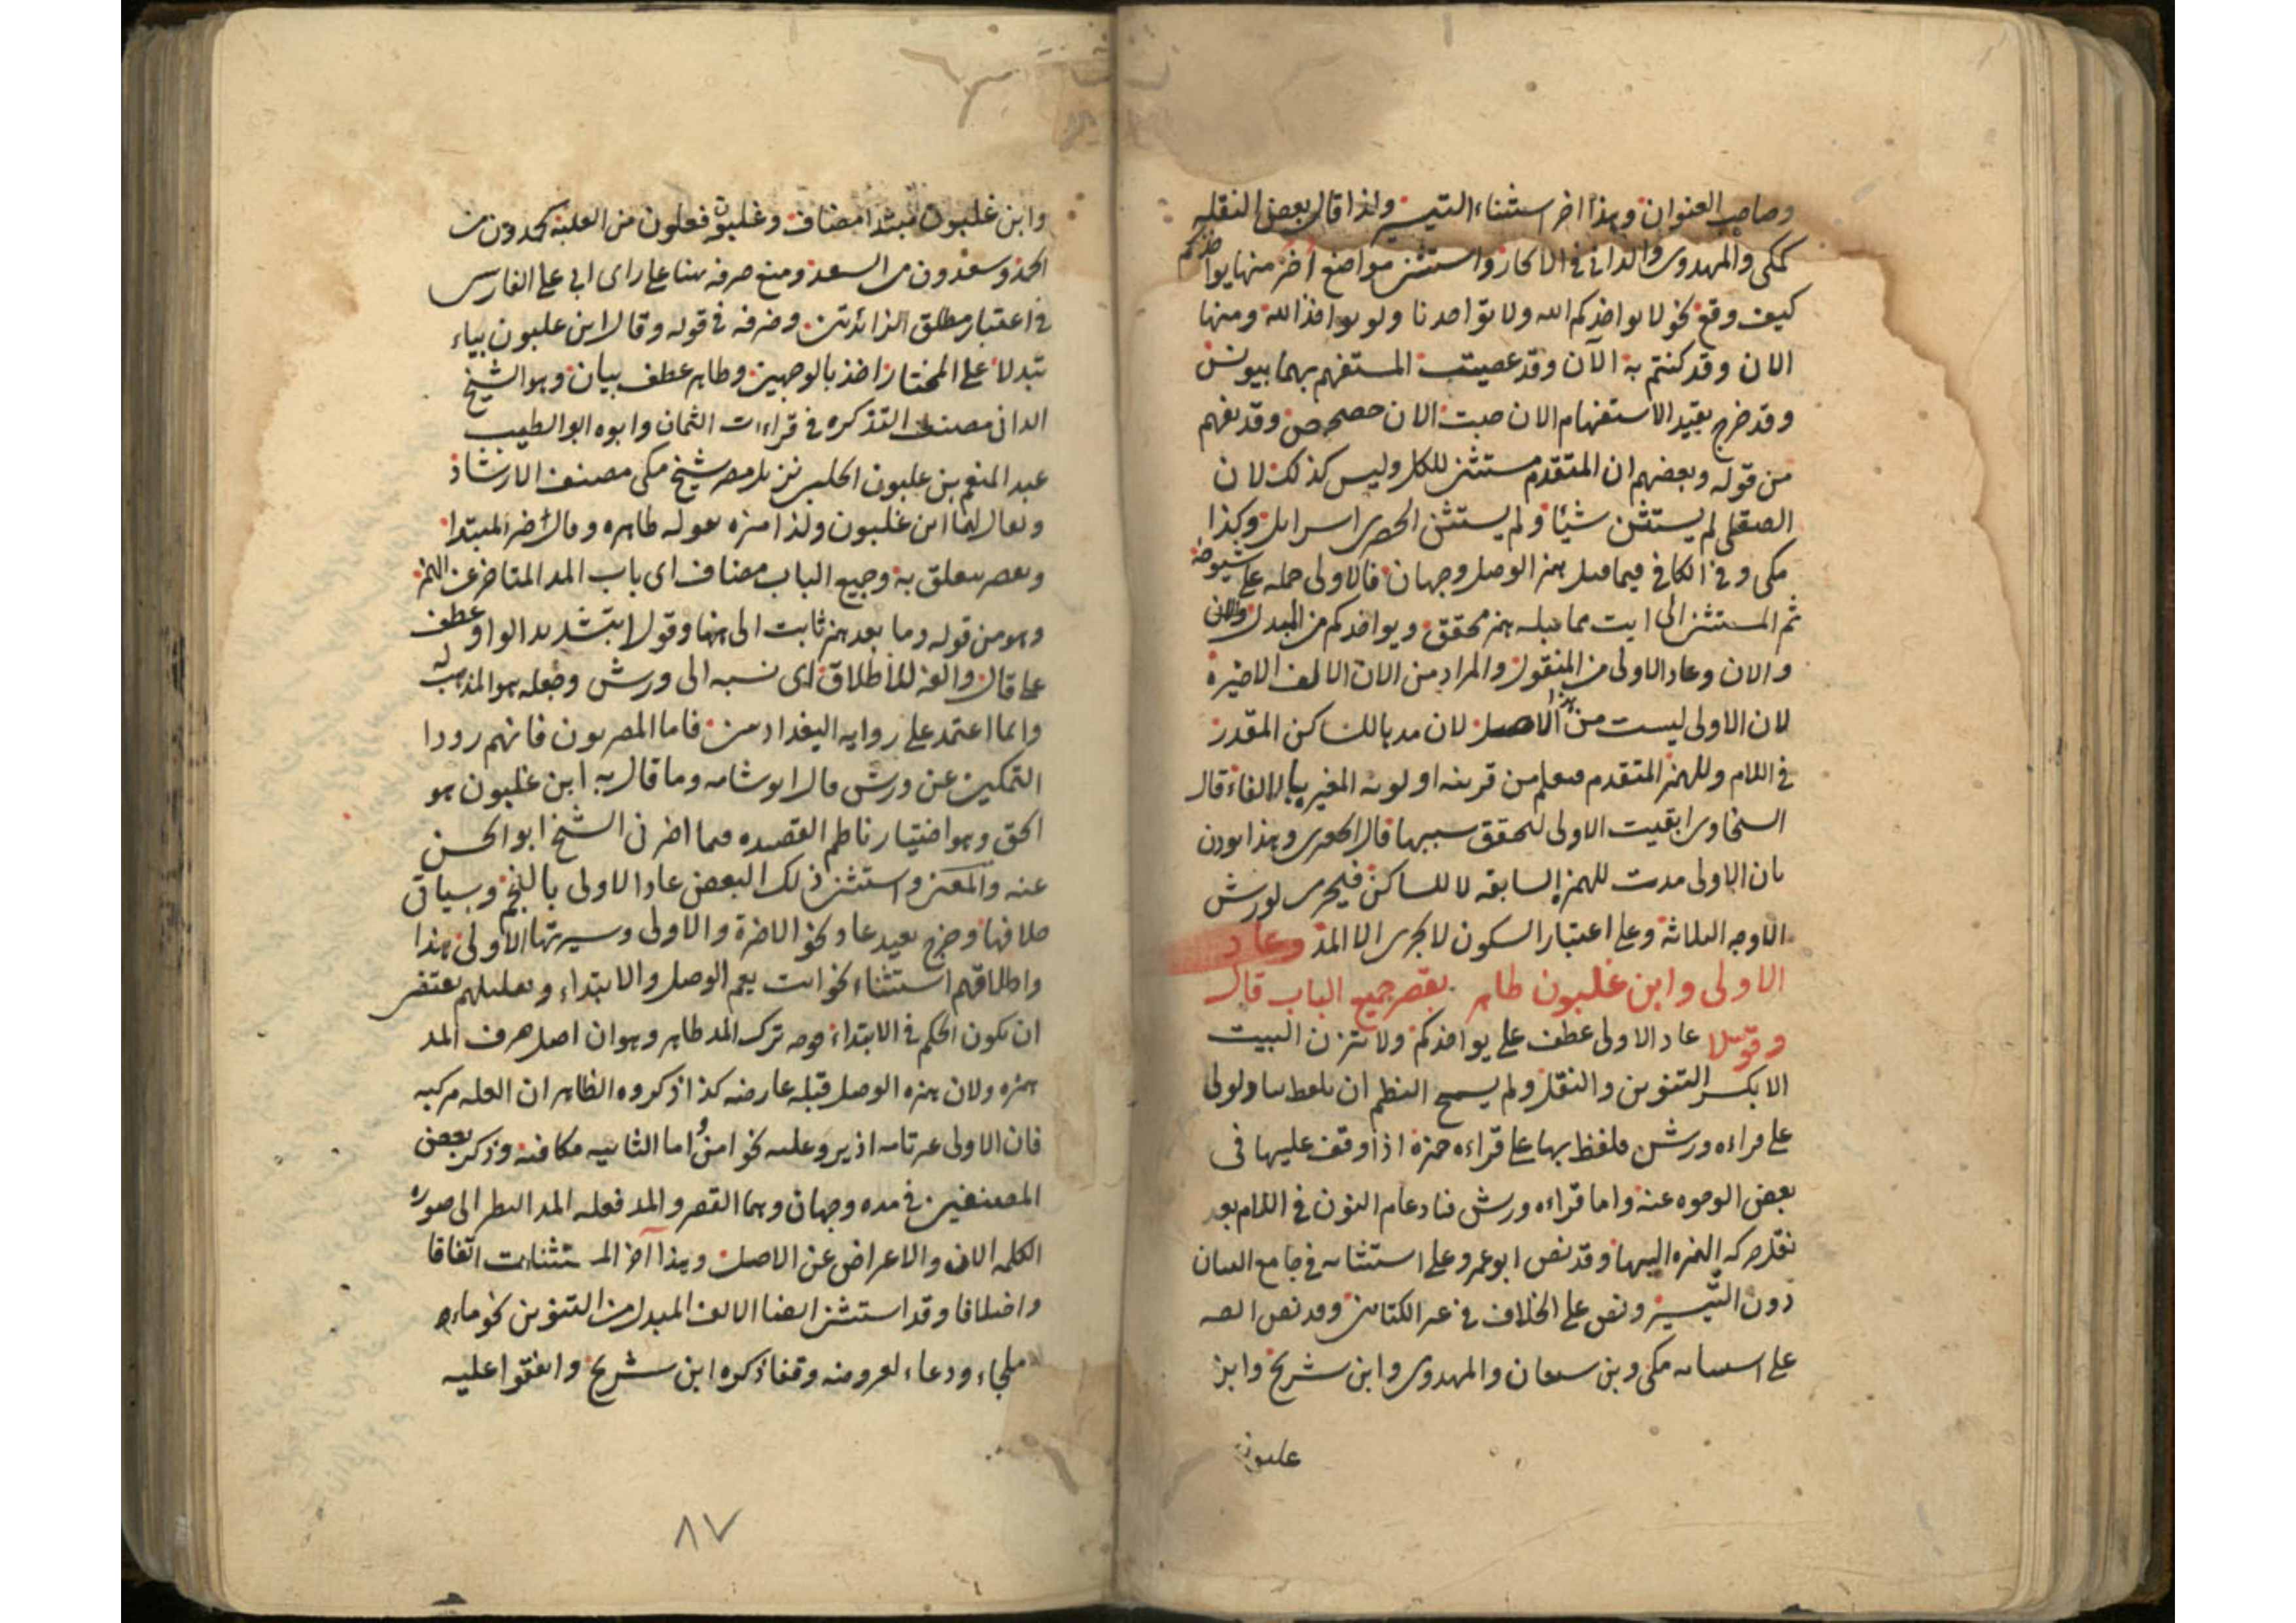 وصاحب العنوان وهذا اخر استثناء التيسير ولذا قال بعض النقله
كمكى والمهدوى والدانى فى الايجاز واستثنى مواضع أخر منها يواخذكم
كيف وقع نحو لا يواخذكم الله ولا تواخذنا ولو يواخذ الله ومنها
الان وقد كنتم به الآن وقد عصيت المستفهم بهما بيونس
وقد خرج بقيد الاستفهام الان جيت الان حصحص وقد يفهم
من قوله وبعضهم ان المتقدم مستثنى للكل وليس كذلك لان
الصقلى لم يستثن شيئا ولم يستثن الحصرى اسرايل وكذا
مكى وفى الكافى فيما قبل همز الوصل وجهان فالاولى حمله على شيوخه
ثم المستثنى الى ايت مما قبله همز محقق ويواخذكم من المبدل والان
والان وعاد الاولى من المنقول والمراد من الان الالف الاخيرة
لان الاولى ليست من هذا الاصل لان مدها للساكن المقدر
فى اللام وللهمز المتقدم فيعلم من قرينه او لويه المغير بالالغاء قال
السخاوى ابقيت الاولى لتحقق سببها قال الجعبرى وهذا يوذن
بان الاولى مدت للهمز السابقه لا للساكن فيجرى لورش
الاوجه الثلاثة وعلى اعتبار السكون لا يجرى الا المد وعاد
الاولى وابن غلبون طاهر بقصر جميع الباب قال
وقولا عاد الاولى عطف على يواخذكم ولا يتزن البيت
الا بكسر التنوين والنقل ولم يسمح النظم ان يلفظ بعاد لولى
على قراءه ورش فلفظ بها على قراءه حمزة اذا وقف عليها فى
بعض الوجوه عنه واما قراءه ورش فبادغام النون فى اللام بعد
نقل حركه الهمزه اليها وقد نص ابو عمرو على استثنائه فى جامع البيان
دون التيسير ونص على الخلاف فى غير الكتابين وقد نص
على استثنائه مكى وبن سفيان والمهدوى وابن شريح وابن
غلبون
وابن غلبون مبتدا مضاف وغلبون فعلون من الغلبة كحمدون من
الحمد وسعدون من السعد ومنع صرفه بناء على راى ابى على الفارسى
فى اعتبار مطلق الزائدتين وصرفه فى قوله وقال ابن غلبون بياء
تبدلا على المختار اخذ بالوجهين وطاهر عطف بيان وهو الشيخ
الدانى مصنف التذكره فى قراءات الثمان وابوه ابو الطيب
عبد المنعم بن غلبون الحلبى نزيل مصر شيخ مكى مصنف الارشاد
ويقال لهما ابن غلبون ولذا ميزه بقوله طاهره وقال خبر المبتدا
وبقصر متعلق به وجميع الباب مضاف اى باب المد المتاخر عن الهمز
وهو من قوله وما بعد همز ثابت الى هنا وقولا بتشديد الواو عطف
على قال والفه للاطلاق اى نسبه الى ورش وجعله هو المذهب له
وانما اعتمد على روايه البغداديين فاما المصريون فانهم رووا
التمكين عن ورش قال ابو شامه وما قال به ابن غلبون هو
الحق وهو اختيار ناظم القصيده فيما اخبرنى الشيخ ابو الحسن
عنه والمعنى واستثنى ذلك البعض عادا الاولى بالنجم وسياتى
خلافها وخرج بقيد عاد نحو الاخرة والاولى وسيرتها الاولى هذا
واطلاقهم استثناء نحو ايت يعم الوصل والابتداء وتعليلهم يقتضى
ان يكون الحكم فى الابتداء وجه ترك المد ظاهر وهو ان اصل حرف المد
همزه ولان همزه الوصل قبله عارضه كذا ذكروه الظاهر ان العله مركبه
فان الاولى غير تامه اذ يرد عليه نحو امنوا اما الثانيه فكافيه وذكر بعض
المصنفين فى مده وجهان وهما القصر والمد فعله المد النظر الى صوره
الكلمه الان والاعراض عن الاصل وهذا آخر المستثنات اتفاقا
واختلافا وقد استثنى ايضا الالف المبدل من التنوين نحو ماء
ملجاء ودعاء لعروضه وقفا ذكره ابن شريح واتفقوا عليه
٨٧